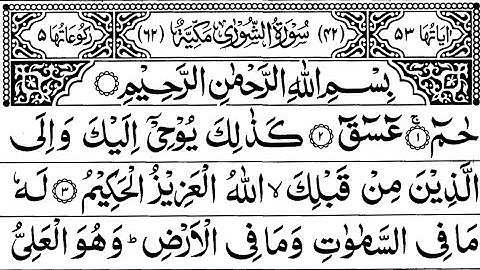 اٰیَاتُهَا ۵۳ (۴۲) سُوْرَةُ الشُّوْرٰی مَكِّیَّةٌ (۶۲) رُكُوْعَاتُهَا ۵
بِسْمِ اللّٰهِ الرَّحْمٰنِ الرَّحِیْمِ
حٰمٓ ۚ﴿۱﴾ عٓسٓقٓ ﴿۲﴾ كَذٰلِكَ یُوْحِیْۤ اِلَیْكَ وَاِلَی
الَّذِیْنَ مِنْ قَبْلِكَ ۙ اللّٰهُ الْعَزِیْزُ الْحَكِیْمُ ﴿۳﴾ لَهٗ
مَا فِی السَّمٰوٰتِ وَمَا فِی الْاَرْضِ ؕ وَهُوَ الْعَلِیُّ